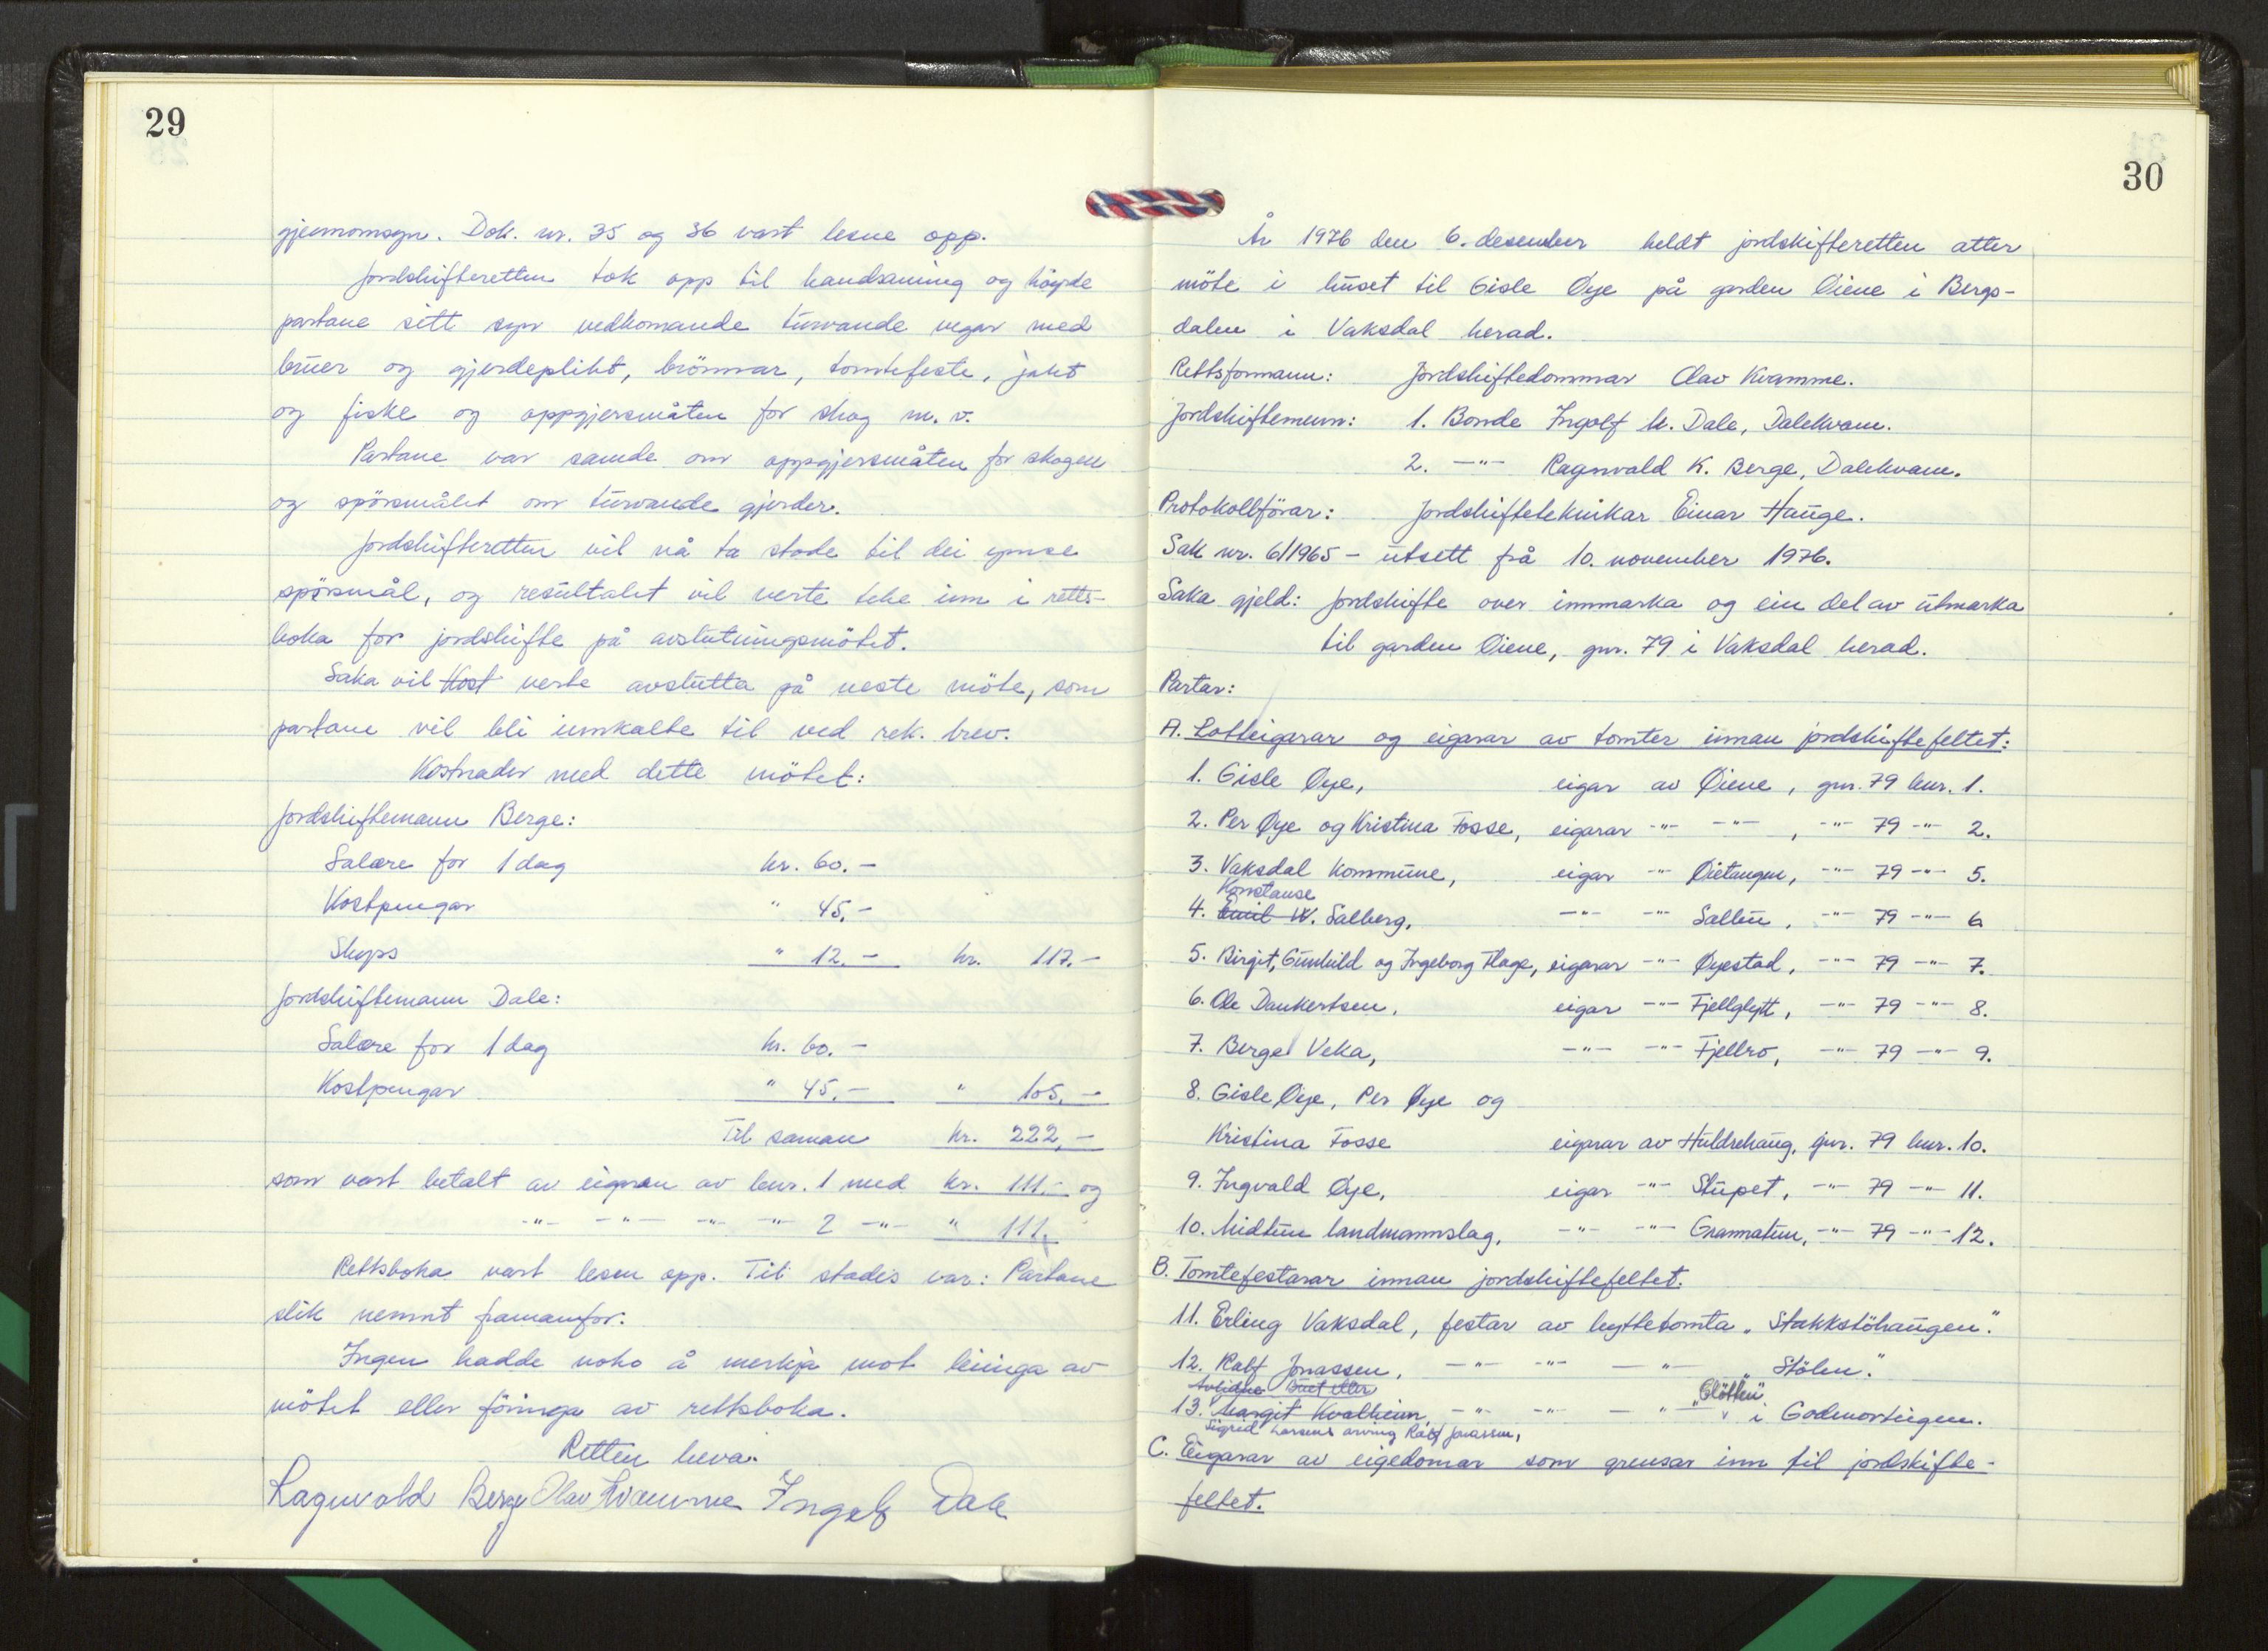 29
gjennomsyn. Dok. nr. 35 og 36 vart lesne opp.
Jordskifteretten tok opp til handsaming og høyrde
partane sitt syn vedkomande turvande vegar med
bruer og gjerdeplikt, brönnar, tomtefeste, jakt
og fiske og oppgjersmåten for skog m. v.
Partane var samde om oppgjersmåten for skogen
og spörsmålet om turvande gjerder.
Jordskifteretten vil nå ta stode til dei ymse
spörsmål, og resultatet vil verte teke inn i retts-
boka for jordskifte på avslutningsmötet.
Saka vil Kost verte avslutta på neste möte, som
partane vil bli innkalte til ved rek. brev.
Kostnader med dette mötet:
Jordskiftemann Berge:
Salære for 1 dag kr. 60.-
Kostpengar " 45,-
Skyss " 12.- kr. 117.-
Jordskiftemann Dale:
Salære for 1 dag kr. 60.-
Kostpengar " 45,- " 105.-
Til saman kr. 222,-
som vart betalt av eigaren av bnr. 1 med kr. 111.- og
-"- -"- -"- -"- 2 -"- " 111,
Rettsboka vart lesen opp. Til stades var: Partane
slik nemnt framanfor.
Ingen hadde noko å merkja mot leiinga av
mötet eller föringa av rettsboka.
Retten heva.
Ragnvald Berge Olav Kvamme Ingolf Dale
30
År 1976 den 6. desember heldt jordskifteretten atter
möte i huset til Gisle Øye på garden Øiene i Bergs-
dalen i Vaksdal herad.
Rettsformann: Jordskiftedommar Olav Kvamme.
Jordskiftemenn: 1. Bonde Ingolf M. Dale, Dalekvam.
2. -"- Ragnvald K. Berge, Dalekvam.
Protokollförar: Jordskifteteknikar Einar Hauge.
Sak nr. 6/1965 - utsett frå 10. november 1976.
Saka gjeld: Jordskifte over innmarka og ein del av utmarka
til garden Øiene, gnr. 79 i Vaksdal herad.
Partar:
A. Lotteigarar og eigarar av tomter innan jordskiftefeltet:
1. Gisle Øye, eigar av Øiene, gnr. 79 bnr. 1.
2. Per Øye og Kristina Fosse, eigarar -"- -"- , -"- 79 -"- 2.
3. Vaksdal Kommune, eigar -"- Øietangen, -"- 79 -"- 5.
Konstanse
4. Emil W. Salberg, -"- -"- Salltu, -"- 79 -"- 6
5. Birgit, Gunhild og Ingeborg Flage, eigarar -"- Øyestad, -"- 79 -"- 7.
6. Ole Dankertsen, eigar -"- Fjellglytt, -"- 79 -"- 8.
7. Berge Veka, -"- -"- Fjellro, -"- 79 -"- 9.
8. Gisle Øye, Per Øye og
Kristina Fosse eigarar av Huldrehaug, gnr. 79 bnr. 10.
9. Ingvald Øye, eigar -"- Stupet, -"- 79 -"- 11.
10. Midtun landmannslag, -"- -"- Grannatun, -"- 79 -"- 12.
B. Tomtefestarar innan jordskiftefeltet.
11. Erling Vaksdal, festar av hyttetomta „Stakkstöhaugen".
12. Ralf Jonassen, -"- -"- -"- „Stölen".
Avlidne Buet etter „Slötten"
13. Margit Kvalheim, -"- -"- -"- i Godmorsteigen.
Sigrid Larsens arving Ralf Jonassen,
C. Eigarar av eigedomar som grensar inn til jordskifte-
feltet.